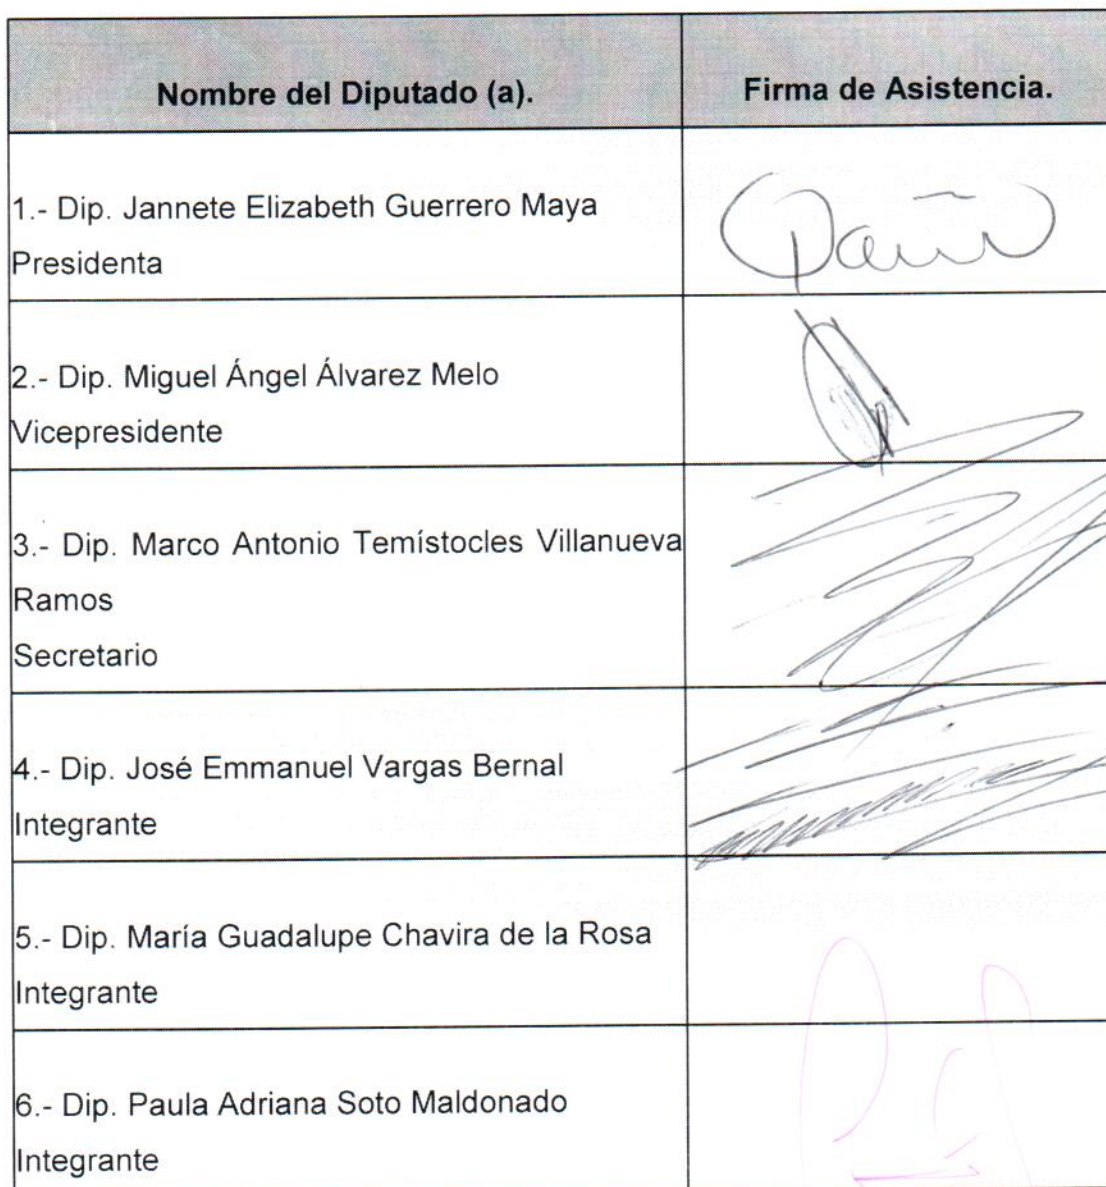 Nombre del Diputado (a).
Firma de Asistencia.
1.- Dip. Jannete Elizabeth Guerrero Maya
Presidenta
2.- Dip. Miguel Ángel Álvarez Melo
Vicepresidente
3.- Dip. Marco Antonio Temístocles Villanueva
Ramos
Secretario
4.- Dip. José Emmanuel Vargas Bernal
Integrante
5.- Dip. María Guadalupe Chavira de la Rosa
Integrante
6.- Dip. Paula Adriana Soto Maldonado
Integrante